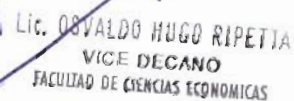 Lic. OSVALDO HUGO RIPETTA
VICE DECANO
FACULTAD DE CIENCIAS ECONOMICAS